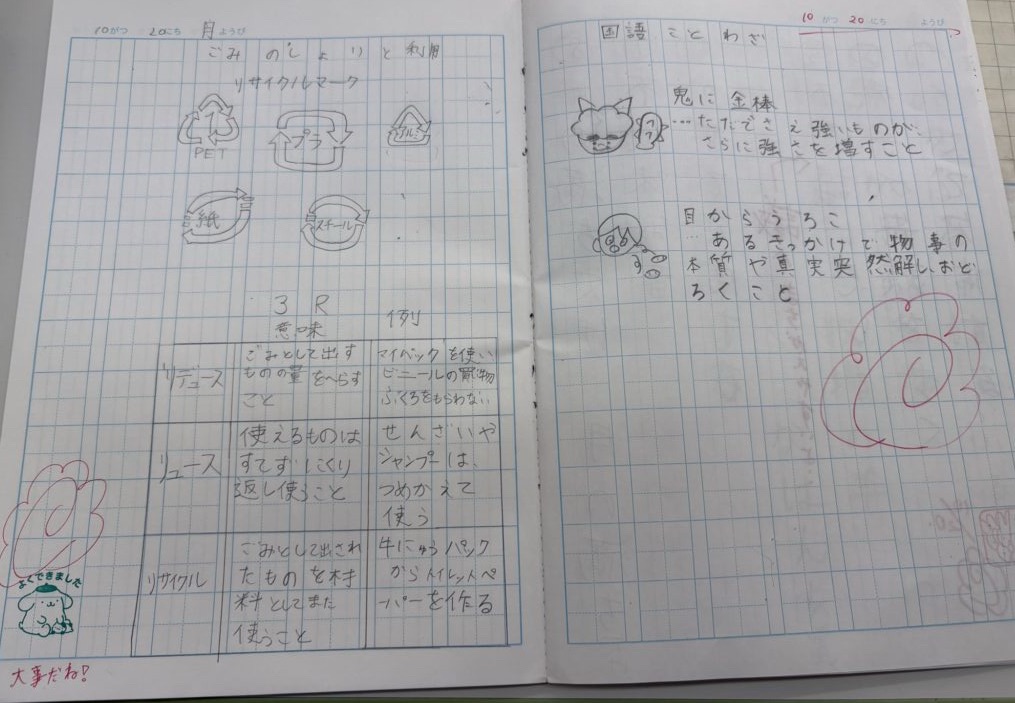 10がつ 20にち 月ようび
ごみのしょりと利用
リサイクルマーク
1
PET
プラ
アルミ
紙
スチール
3R
意味
例
リデュース
ごみとして出す
ものの量をへらす
こと
マイバックを使い
ビニールの買物
ぶくろをもらわない
リュース
使えるものは
すてずにくり
返し使うこと
せんざいや
シャンプーは、
つめかえて
使う
リサイクル
ごみとして出され
たものを材
料としてまた
使うこと
牛にゅうパック
からトイレットペ
ーパーを作る
よくできました
大事だね!
10がつ 20にち ようび
国語 ことわざ
鬼に金棒
…ただでさえ強いものが、
さらに強さを増すこと
目からうろこ
…あるきっかけで物事の
本質や真実突然解し、おど
ろくこと